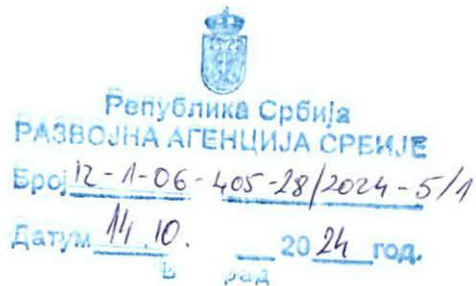 Република Србија
РАЗВОЈНА АГЕНЦИЈА СРБИЈЕ
Број 12-1-06-405-28/2024-5/1
Датум 14.10. 2024 год.